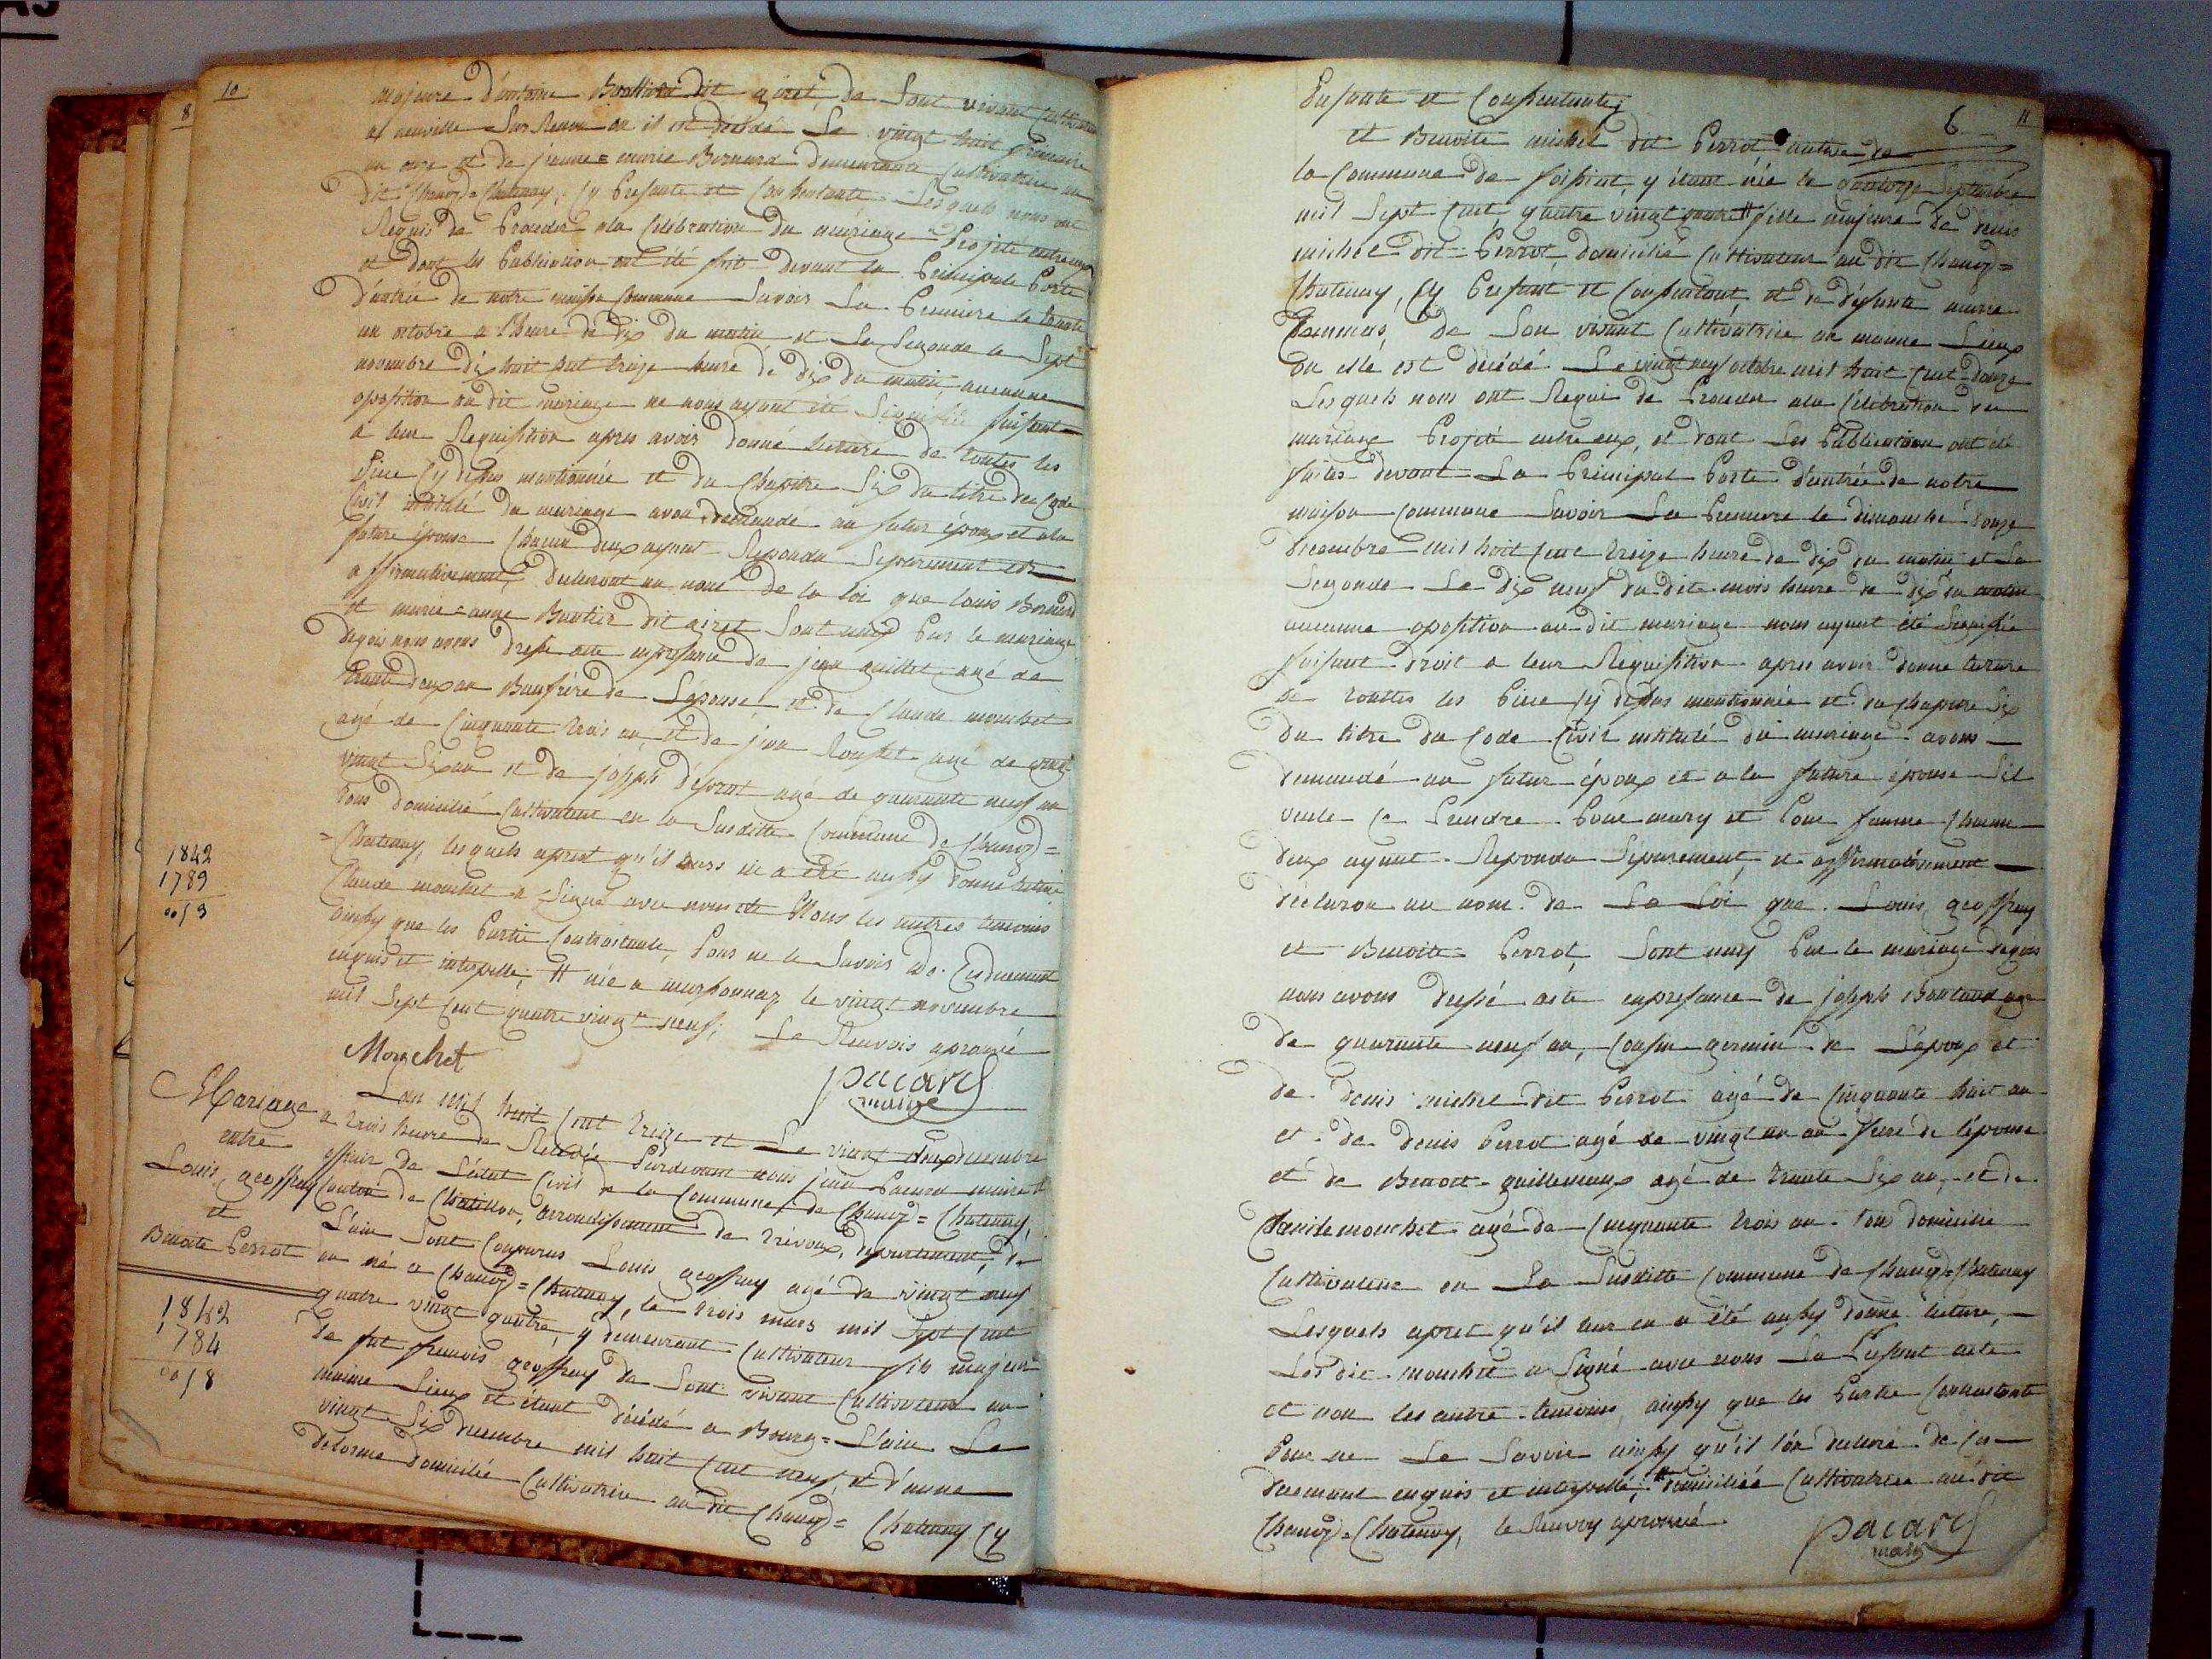 10
8
majeure d'antoine Bouttier dit giret, de Sont vivant Cultivateur
a neuville Sur Renon ou il est décédé Le vingt huit frimaire
an onze et de jeanne=marie Bernard demeurante Cultivatrice au
dit Chanoz=Chatenay, Cy Présante et Consentante Lesquels nous ont
Requis de Proceder ala Celebration du mariage Projeté entre eux
et dont les Publication ont été faite devant la Principale Porte
d'entrée de notre maison Commune Savoir La Premiere le trente
un octobre a l'heure de dix du matin et La Segonde le Sept
novembre dix huit cent treize heure de dix du matin aucunne
oposition au dit mariage ne nous ayant été Signifiée faisant
a leur Requisition apres avoir donné lecture de toutes les
Piece Cy dessus mentionnée et du Chapitre Six du titre du Code
Civil intitulé du mariage avon demandé au futur époux et ala
future épouse Chacun deux ayant Repondu Séparement et
affirmativement, declaront au nom de la loi que louis Bernard
et marie=anne Boutier dit giret Sont unis Par le mariage
dequoi nous avons dressé acte en presance de jean guillet agé de
trente deux an Beaufrére de L'épouse, et de Claude mouchet
agé de Cinquante trois an, et de jean Rousset agé de vingt
vingt Six an et de joseph désorat agé de quarante neuf an
tous domicilié Cultivateur en la Susditte Commune de Chanoz=
=Chatenay, lesquels apret qu'il leurs en a été aussy donné lecture
Claude mouchet a Signé avec nous et Nons les autres temoins
ainssy que les Partie Contractante, Pour ne le Savoir de Ce duement
enquis et interpellé; # née a marsonnaz le vingt novembre
mil Sept Cent quatre vingt neuf; Le Renvois aprouvé
Mouchet
pacard
maire
1842
1789
0013
Mariage
entre
Louis geoffray
et
Benoite Perrot
1842
1784
0018
Lan mil huit Cent treize et Le vingt deux decembre
a trois heure de Relevée Pardevant nous jean Pacard maire et
officier de L'état Civil de la Commune de Chanoz=Chatenay,
Canton de Chatillon, arrondissement de trévoux, departement de
L'ain Sont Comparus Louis geoffray agé de vingt neuf
an né a Chanoz=Chatenay, le trois mars mil Sept Cent
quatre vingt quatre, y demeurant Cultivateur fils majeur
de fut francois geoffray de Sont vivant Cultivateur au
maime Lieux et étant décédé a Bourg=L'ain Le
vingt Six decembre mil huit Cent neuf, et d'anne
delorme domicilié Cultivatrice au dit Chanoz=Chatenay Cy
6
11
Présante et Consentante;
et Benoite michel dit Perrot native de
la Commune de foissiat, y étant née le quatorze Septembre
mil Sept Cent quatre vingt quatre # fille majeure de denis
michel dit Perrot, domicilié Cultivateur au dit Chanoz=
Chatenay, Cy Présant et Consentant et de défunte marie
de Son vivant Cultivatrice au maime Lieux
ou elle est décédé Le vingt neuf octobre mil huit Cent douze
Lesquels nous ont Requi de Proceder ala Célébration du
mariage Projeté entre eux, et dont Les Publication ont été
faites devant La Principal Porte d'entrée de notre
maison Commune Savoir La Premiere le dimanche douze
decembre mil huit Cent treize heure de dix du matin et La
Segonde Le dix neuf du dit mois heure de dix du matin
aucunne oposition au dit mariage nous ayant été Signifiée
faisant droit a leur Requisition apres avoir donné lecture
de touttes les Piece Cy dessus mentionnée et du Chapitre Six
du titre du Code Civil intitulé du mariage avons
demandé au futur époux et a la future épouse Sil
veule Ce Prendre Pour mary et Pour femme Chacun
deux ayant Repondu Séparement et affirmativement
déclaron au nom de La Loi que Louis geoffray
et Benoite Perrot, Sont unis Par le mariage dequoi
nous avons dressé acte en presance de joseph Boutaud agé
de quarante neuf an, Cousin germain de L'époux et
de denis michel dit Perrot agé de Cinquante huit an
et de denis Perrot agé de vingt un an frére de l'épouse
et de Benoit guillemaux agé de trente Six an, et de
Claude mouchet agé de Cinquante trois an tous domicilié
Cultivateur en La Susditte Commune de Chanoz=Chatenay
Lesquels apret qu'il leur en a été aussy donné lecture,
Les dit mouchet a Signé avec nous La Présent acte
et non les autre temoins ainssy que les Partie Contractante
Pour ne Le Savoir ainssy qu'il l'on declaré de Ce
duement enquis et interpellé; # domiciliée Cultivatrice au dit
Chanoz=Chatenay, le Renvoy aprouvé
pacard
maire